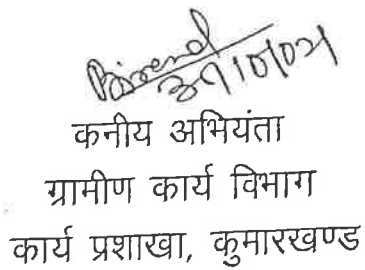 कनीय अभियंता
ग्रामीण कार्य विभाग
कार्य प्रशाखा, कुमारखण्ड